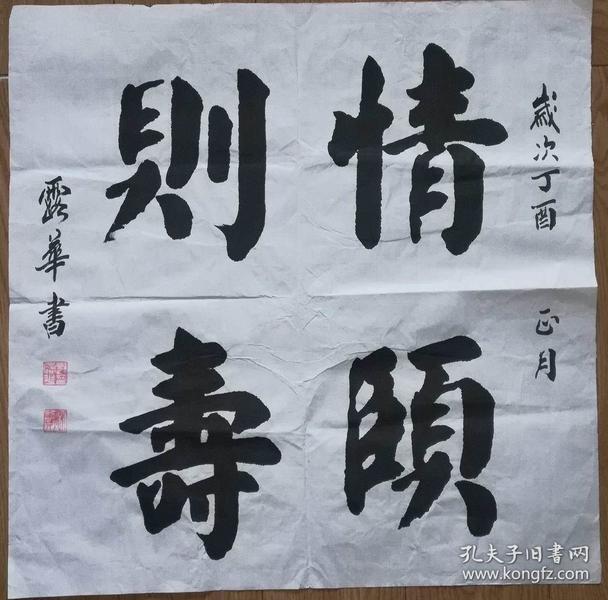 歲次丁酉 正月
情頤
則壽
露華書
孔夫子旧書网
www.kongfz.com